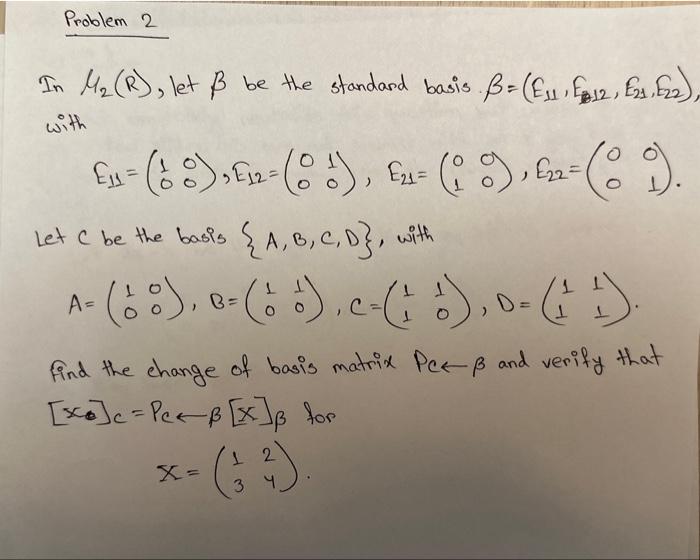 Problem 2
In M₂(R), let β be the standard basis. β=(E₁₁, E₁₂, E₂₁, E₂₂),
with
E₁₁=(1 0; 0 0), E₁₂=(0 1; 0 0), E₂₁=(0 0; 1 0), E₂₂=(0 0; 0 1).
Let C be the basis {A, B, C, D}, with
A=(1 0; 0 0), B=(1 1; 0 0), C=(1 1; 1 0), D=(1 1; 1 1).
find the change of basis matrix P_C←β and verify that
[X]_C = P_C←β [X]_β for
X=(1 2; 3 4).